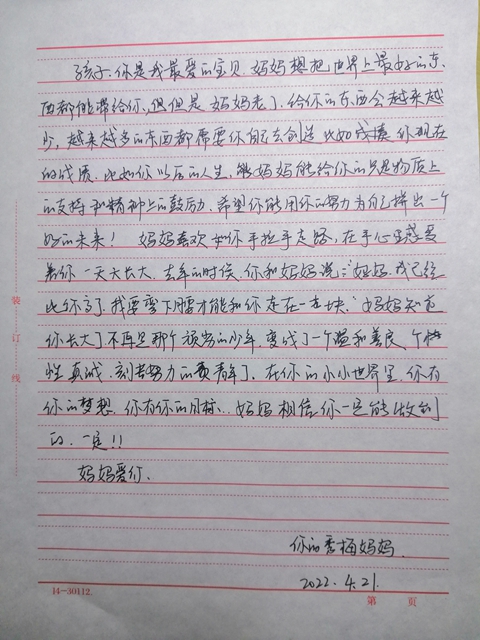 孩子，你是我最爱的宝贝，妈妈想把世界上最好的东
西都能带给你，但但是妈妈老了，给你的东西会越来越
少，越来越多的东西都需要你自己去创造 比如成绩，你现在
的成绩，比如你以后的人生，妈妈能给你的只是物质上
的支持和精神上的鼓励，希望你能用你的努力为自己拼出一个
好的未来！ 妈妈喜欢和你手拉手走路，在手心里感受
着你一天天长大，去年的时候，你和妈妈说："妈妈，我已经
比你高了，我要弯下腰才能和你走在一起块"妈妈知道
你长大了不再是那个顽劣的少年，变成了一个温和善良，个性
性真诚，刻苦努力的青年了，在你的小小世界里，你有
你的梦想，你有你的目标、妈妈相信你一定能做到
的，一定！！
妈妈爱你、
你的秀梅妈妈.
2022. 4.21.
14—30112
第 页
装
订
线